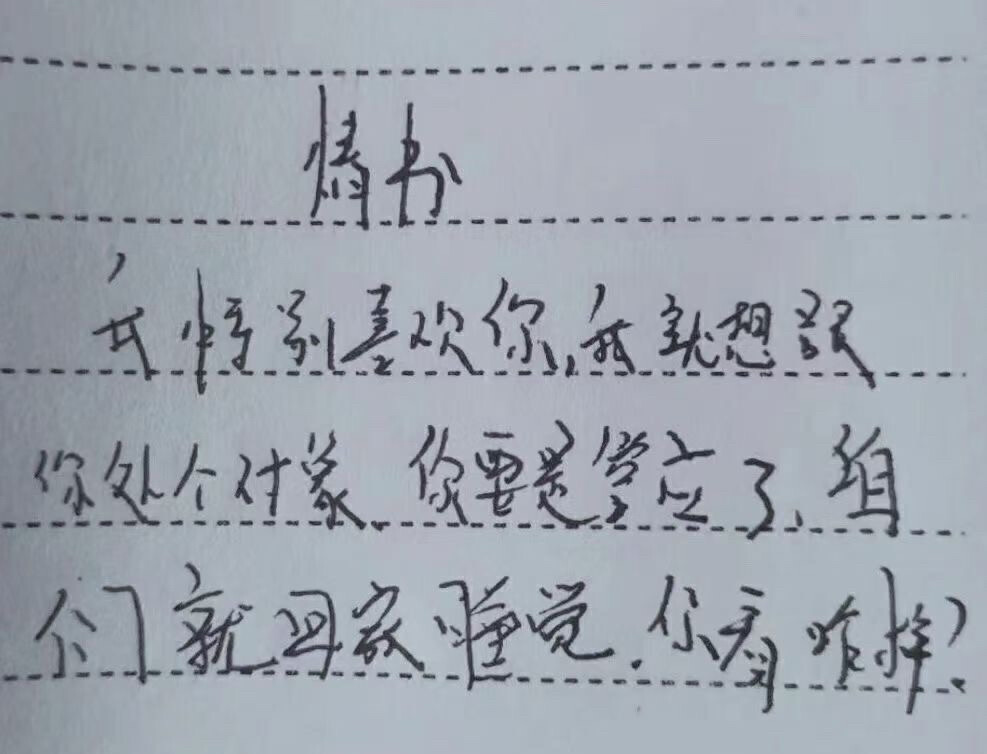 情书
我特别喜欢你,我就想跟
你处个对象,你要是答应了,咱
们就回家睡觉.你看咋样?